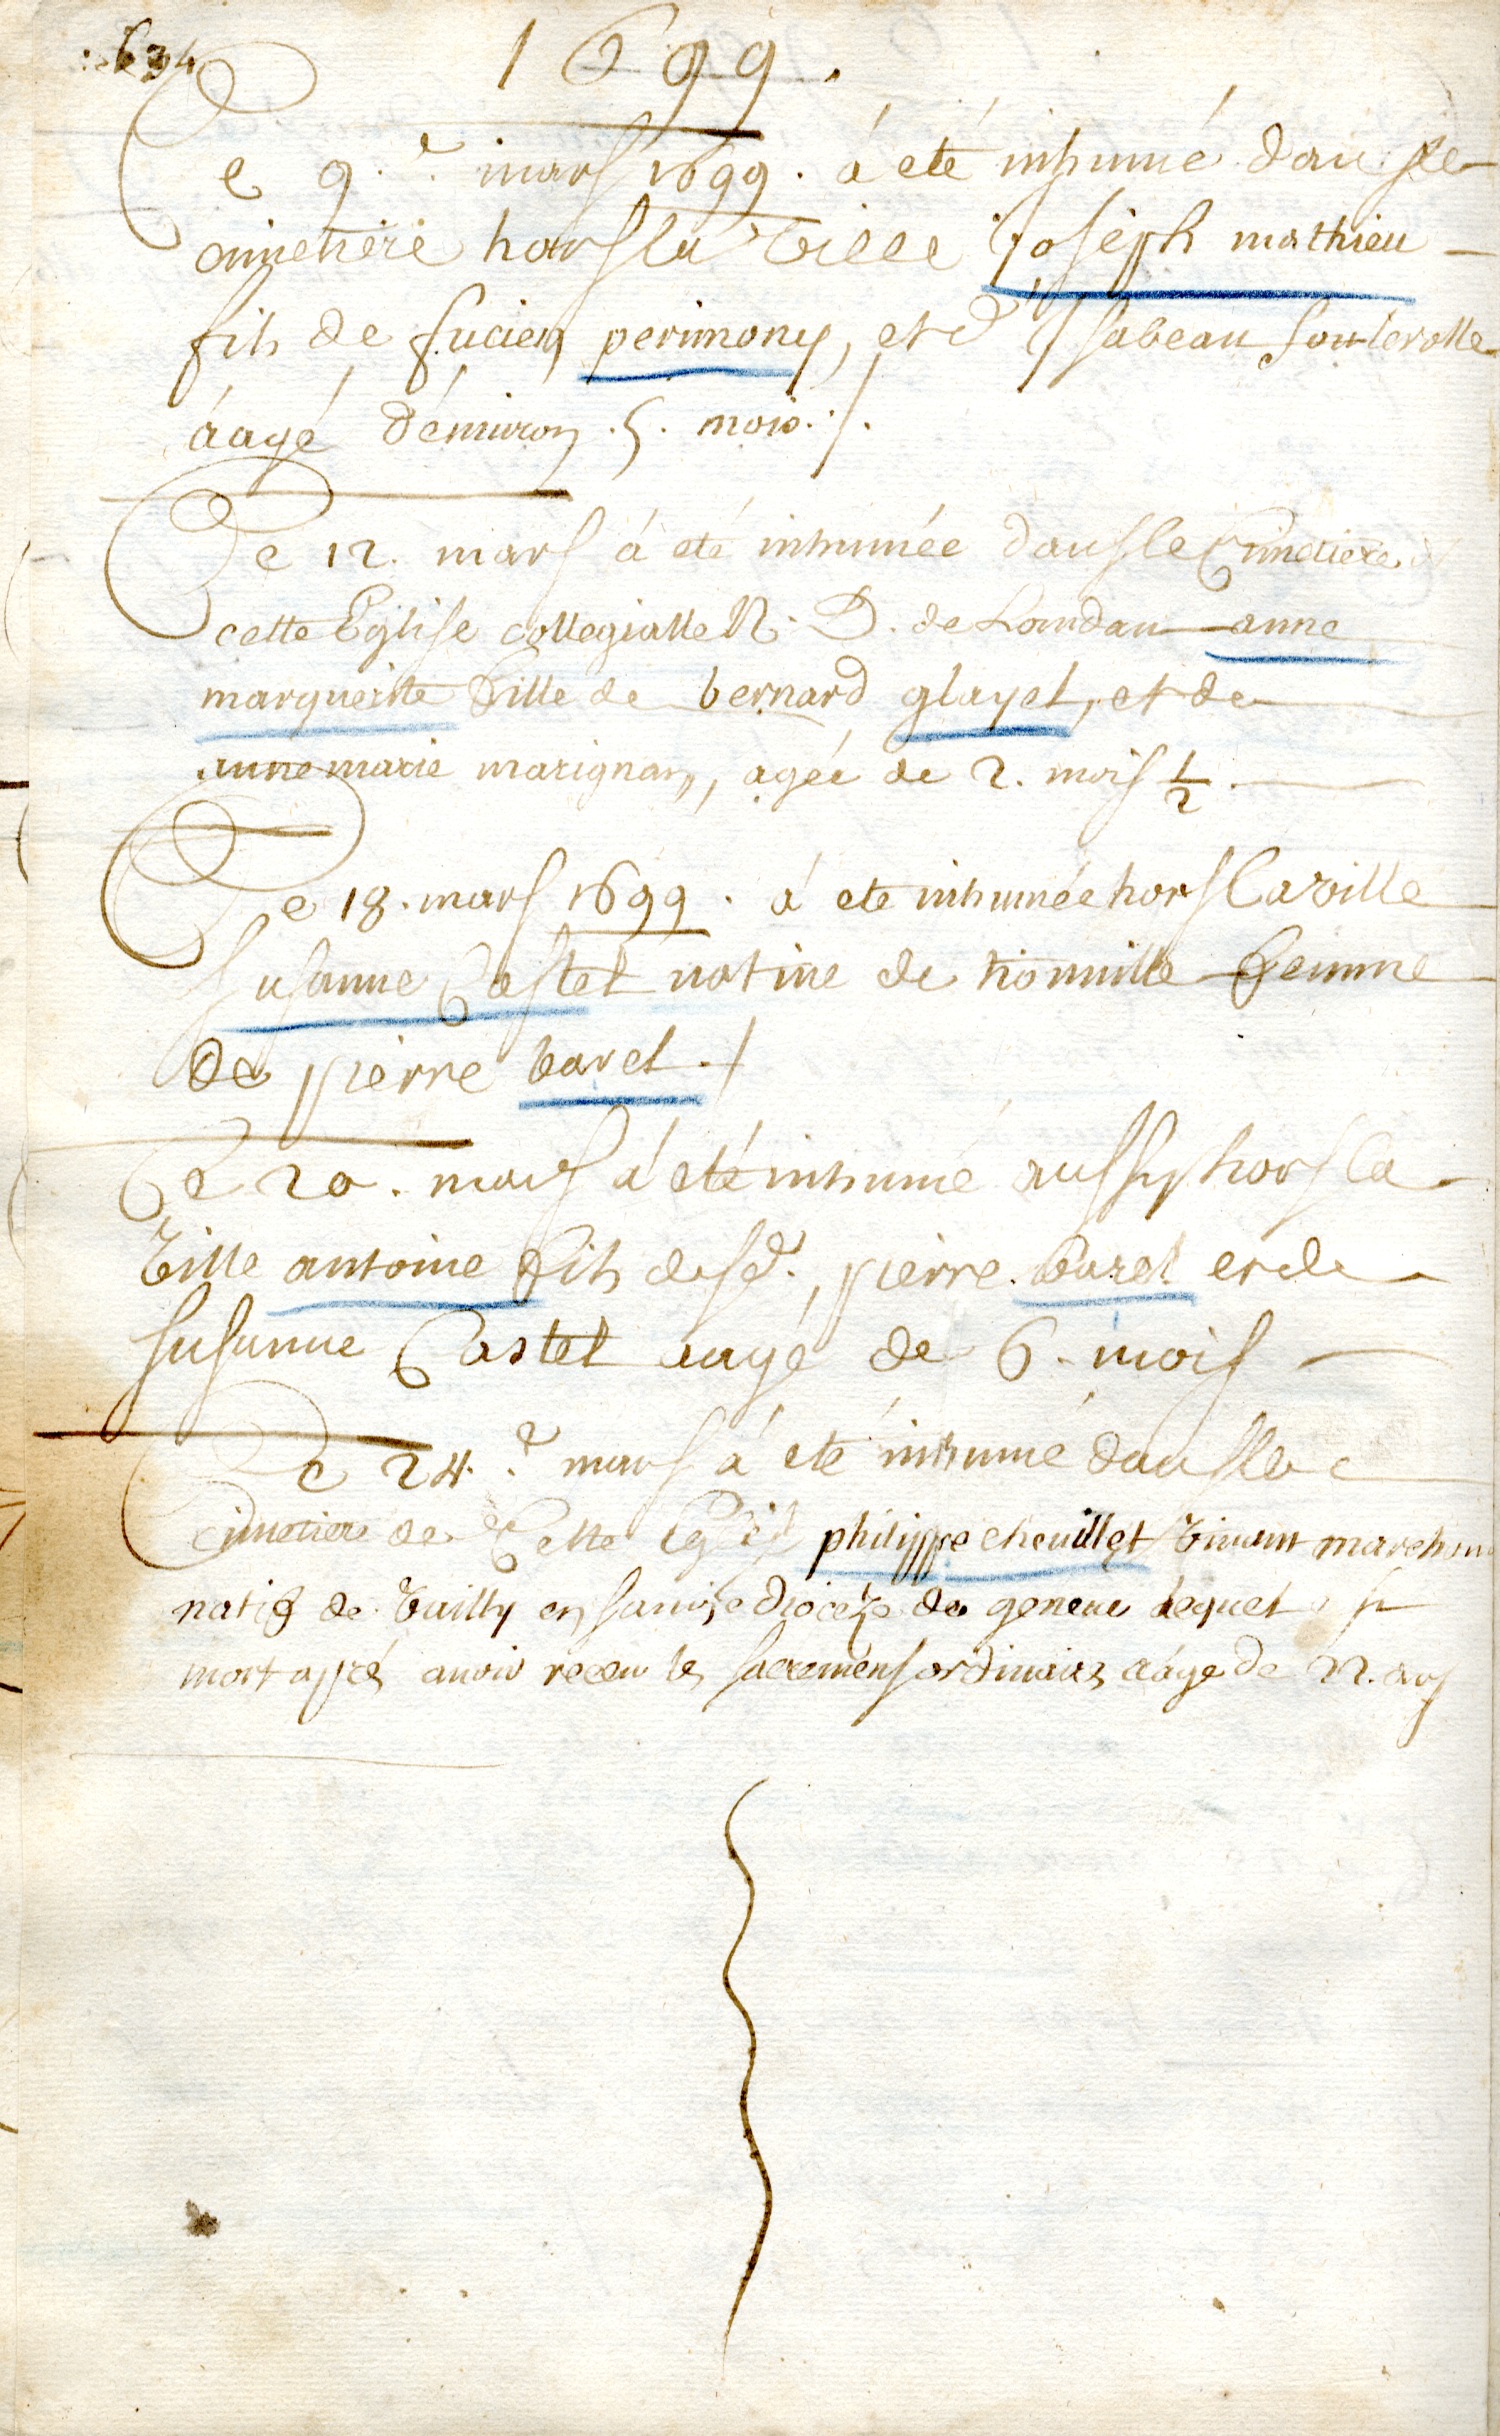 634
1699.
Ce 9.e mars 1699. á eté inhumé dans le
cimetiere hors la Ville Joséph mathieu
fils de Lucien perimony, et d'Isabeau
áagé d'environ .5. mois./.
Ce 12. mars á eté inhumée dans le Cimetiere
cette Eglise collegialle N. D. de Landau anne
marguerite fille de bernard glayet, et de
anne marie marignan, agée de 2. mois 1/2.
Ce 18. mars 1699. á eté inhumée hors la ville
Susanne Castel natiue de femme
de pierre barel ./
Ce 20. mars á eté inhumé aussy hors la
Ville antoine fils de sd. pierre barel et de
Susanne Castel aagé de 6. mois
Ce 24.e mars á eté inhumé dans le
Cimetiere de Cette Eglise philippe cheuillet viuant marchand
natif de en Sauoie diocéze de geneue lequel
mort aprés auoir receu les sacremens ordinaires áage de 22. ans